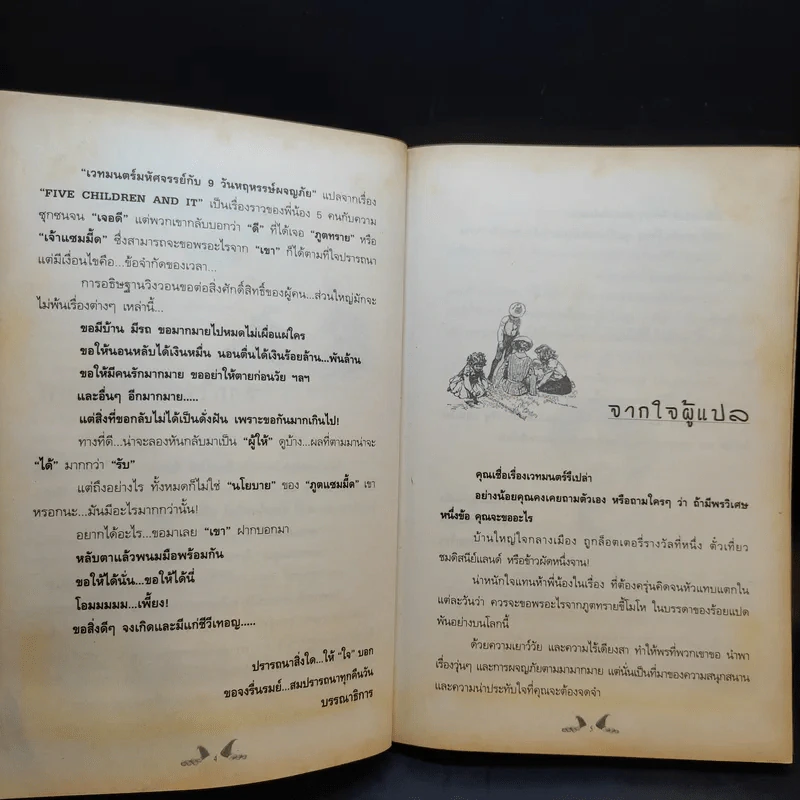 "เวทมนตร์มหัศจรรย์กับ 9 วันหฤหรรษ์ผจญภัย" แปลจากเรื่อง
"FIVE CHILDREN AND IT" เป็นเรื่องราวของพี่น้อง 5 คนกับความ
ซุกซนจน "เจอดี" แต่พวกเขากลับบอกว่า "ดี" ที่ได้เจอ "ภูตทราย" หรือ
"เจ้าแซมมี้ด" ซึ่งสามารถจะขอพรอะไรจาก "เขา" ก็ได้ตามที่ใจปรารถนา
แต่มีเงื่อนไขคือ...ข้อจำกัดของเวลา...
การอธิษฐานวิงวอนขอต่อสิ่งศักดิ์สิทธิ์ของผู้คน...ส่วนใหญ่มักจะ
ไม่พ้นเรื่องต่างๆ เหล่านี้...
ขอมีบ้าน มีรถ ขอมากมายไปหมดไม่เผื่อแผ่ใคร
ขอให้นอนหลับได้เงินหมื่น นอนตื่นได้เงินร้อยล้าน...พันล้าน
ขอให้มีคนรักมากมาย ขออย่าให้ตายก่อนวัย ฯลฯ
และอื่นๆ อีกมากมาย.....
แต่สิ่งที่ขอกลับไม่ได้เป็นดั่งฝัน เพราะขอกันมากเกินไป!
ทางที่ดี...น่าจะลองหันกลับมาเป็น "ผู้ให้" ดูบ้าง...ผลที่ตามมาน่าจะ
"ได้" มากกว่า "รับ"
แต่ถึงอย่างไร ทั้งหมดก็ไม่ใช่ "นโยบาย" ของ "ภูตแซมมี้ด" เขา
หรอกนะ...มันมีอะไรมากกว่านั้น!
อยากได้อะไร...ขอมาเลย "เขา" ฝากบอกมา
หลับตาแล้วพนมมือพร้อมกัน
ขอให้ได้นั่น...ขอให้ได้นี่
โอมมมมม...เพี้ยง!
ขอสิ่งดีๆ จงเกิดและมีแก่ชีวีเทอญ.....
ปรารถนาสิ่งใด...ให้ "ใจ" บอก
ขอจงรื่นรมย์...สมปรารถนาทุกคืนวัน
บรรณาธิการ
4
จากใจผู้แปล
คุณเชื่อเรื่องเวทมนตร์รึเปล่า
อย่างน้อยคุณคงเคยถามตัวเอง หรือถามใครๆ ว่า ถ้ามีพรวิเศษ
หนึ่งข้อ คุณจะขออะไร
บ้านใหญ่ใจกลางเมือง ถูกล็อตเตอรี่รางวัลที่หนึ่ง ตั๋วเที่ยว
ชมดิสนีย์แลนด์ หรือข้าวผัดหนึ่งจาน!
น่าหนักใจแทนห้าพี่น้องในเรื่อง ที่ต้องครุ่นคิดจนหัวแทบแตกใน
แต่ละวันว่า ควรจะขอพรอะไรจากภูตทรายขี้โมโห ในบรรดาของร้อยแปด
พันอย่างบนโลกนี้
ด้วยความเยาว์วัย และความไร้เดียงสา ทำให้พรที่พวกเขาขอ นำพา
เรื่องวุ่นๆ และการผจญภัยตามมามากมาย แต่นั่นเป็นที่มาของความสนุกสนาน
และความน่าประทับใจที่คุณจะต้องจดจำ
5